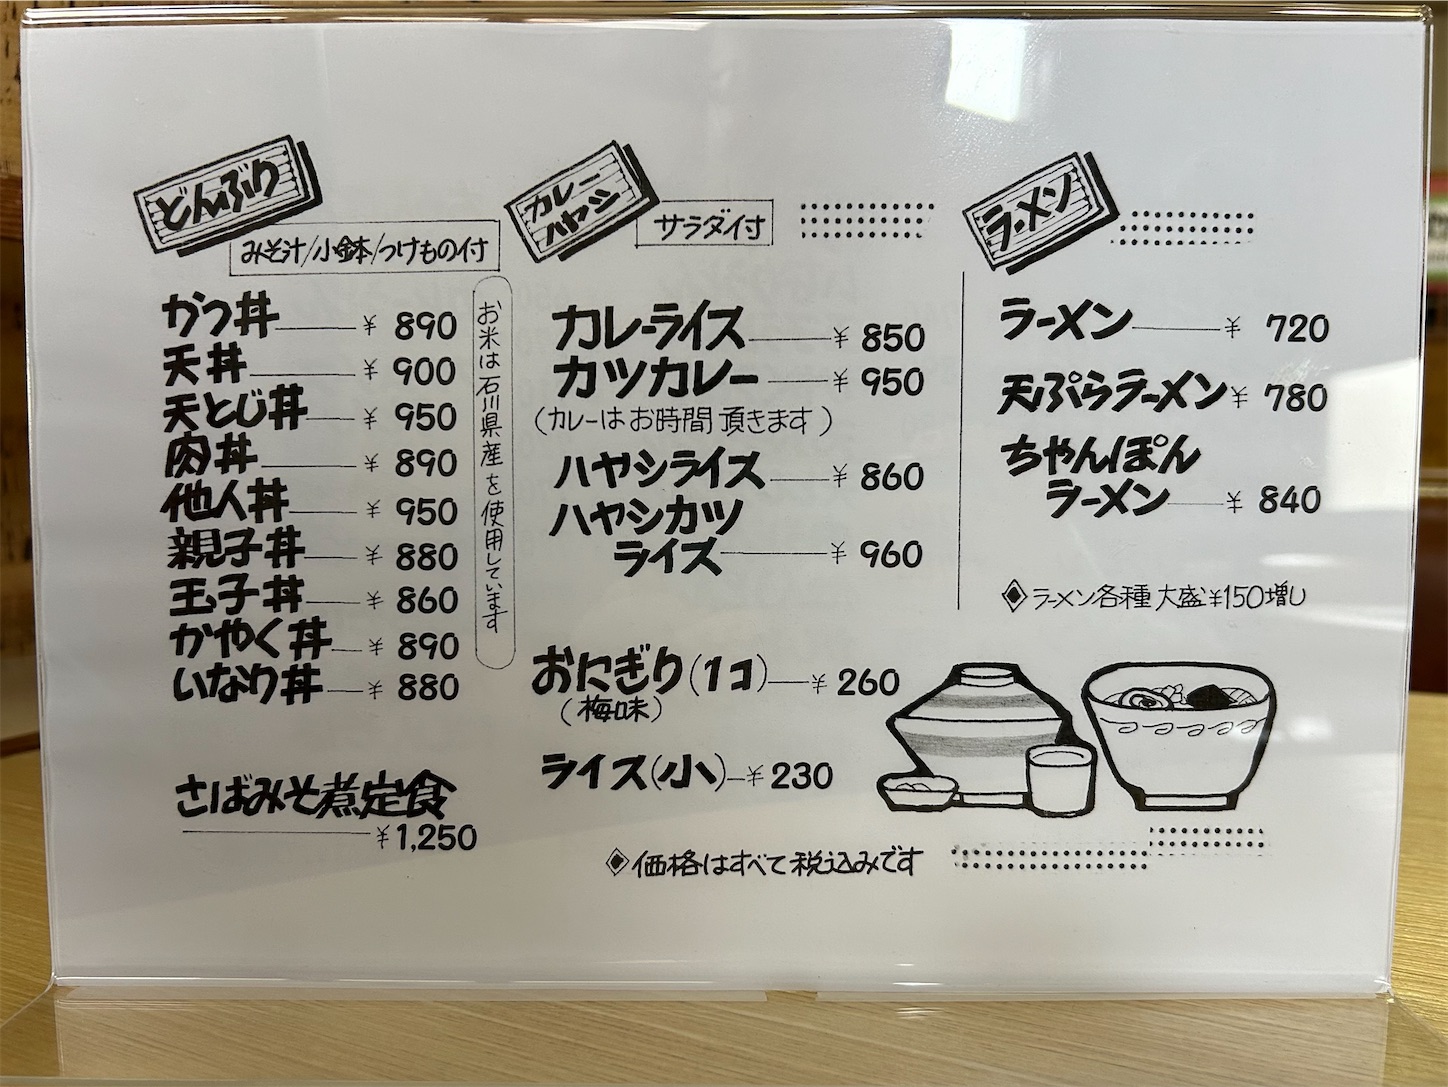 どんぶり
みそ汁/小鉢/つけもの付
かつ丼 ¥ 890
天丼 ¥ 900
天とじ丼 ¥ 950
肉丼 ¥ 890
他人丼 ¥ 950
親子丼 ¥ 880
玉子丼 ¥ 860
かやく丼 ¥ 890
いなり丼 ¥ 880
お米は石川県産を使用しています
さばみそ煮定食
¥1,250
カレー
ハヤシ
サラダ付
カレーライス ¥ 850
カツカレー ¥ 950
(カレーはお時間頂きます)
ハヤシライス ¥ 860
ハヤシカツ
ライス ¥ 960
おにぎり(1コ) ¥ 260
(梅味)
ライス(小) ¥ 230
ラーメン
ラーメン ¥ 720
天ぷらラーメン ¥ 780
ちゃんぽん
ラーメン ¥ 840
◈ラーメン各種大盛¥150増し
◈価格はすべて税込みです